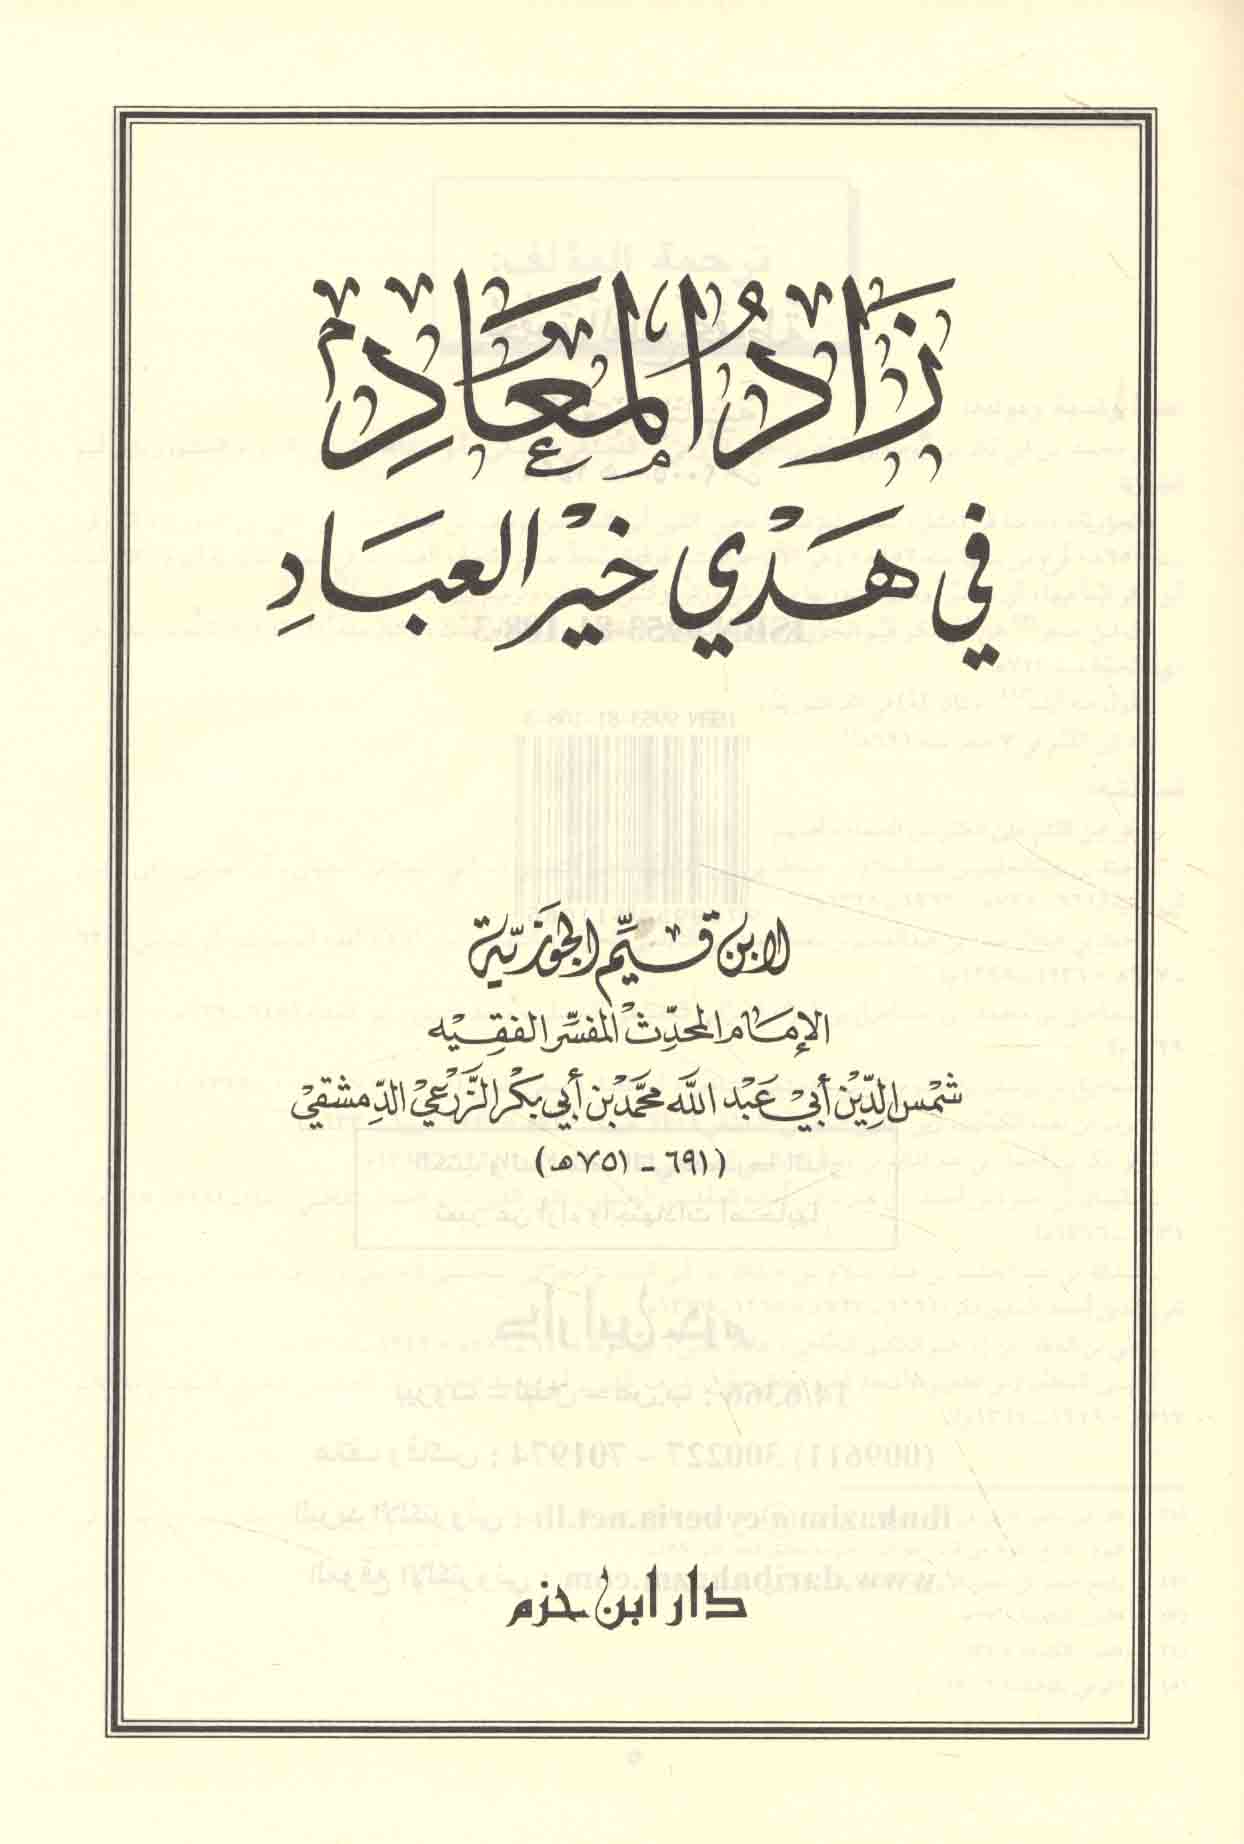 زَادُ المَعَادِ
في هَدْي خَيْر العبَاد
لابن قيّم الجوزيّة
الإمام المحدّث المفسّر الفقيه
شمس الدّين أبي عَبْد الله محمّد بن أبي بكر الزّرعي الدّمشقي
(٦٩١ - ٧٥١هـ)
دار ابن حزم